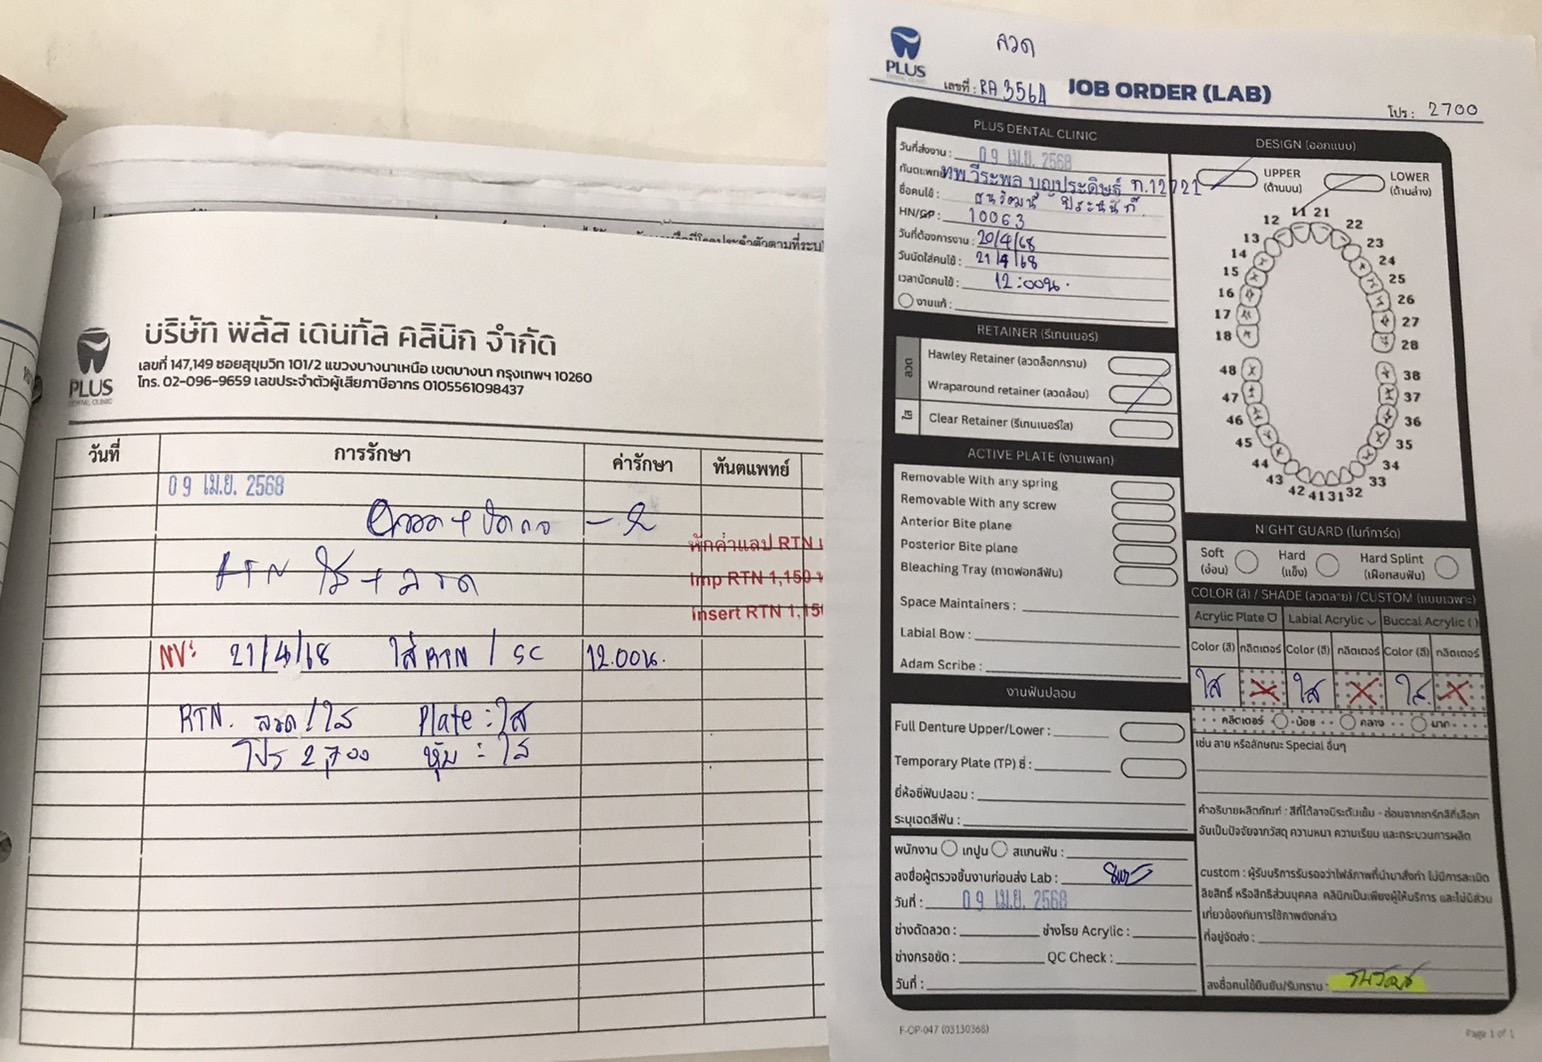 บริษัท พลัส เดนทัล คลินิก จำกัด
เลขที่ 147,149 ซอยสุขุมวิท 101/2 แขวงบางนาเหนือ เขตบางนา กรุงเทพฯ 10260
โทร. 02-096-9659 เลขประจำตัวผู้เสียภาษีอากร 0105561098437
PLUS
DENTAL CLINIC
วันที่ การรักษา ค่ารักษา ทันตแพทย์
09 เม.ย. 2568
หักค่าแลป RTN
RTN ใส + ลวด
Imp RTN 1,150
Insert RTN 1,15
NV: 21/4/68 ใส่ RTN / SC 12.00น.
RTN. ลวด / ใส Plate : ใส
โปร 2,700 หุ้ม : ใส
PLUS
ลวด
เลขที่ : RA 3564 JOB ORDER (LAB) โปร : 2700
PLUS DENTAL CLINIC
วันที่ส่งงาน : 09 เม.ย. 2568
ทันตแพทย์ ทพ วีระพล บุญประดิษฐ์ ท.12721
ชื่อคนไข้ :
HN/GP : 10063
วันที่ต้องการงาน : 20/4/68
วันนัดใส่คนไข้ : 21/4/68
เวลานัดคนไข้ : 12:00น.
งานแก้ :
RETAINER (รีเทนเนอร์)
ลวด
Hawley Retainer (ลวดล็อกกราม)
Wraparound retainer (ลวดล้อม)
ใส
Clear Retainer (รีเทนเนอร์ใส)
ACTIVE PLATE (งานเพลท)
Removable With any spring
Removable With any screw
Anterior Bite plane
Posterior Bite plane
Bleaching Tray (ถาดฟอกสีฟัน)
Space Maintainers :
Labial Bow :
Adam Scribe :
งานฟันปลอม
Full Denture Upper/Lower :
Temporary Plate (TP) ซี่ :
ยี่ห้อซี่ฟันปลอม :
ระบุเฉดสีฟัน :
พนักงาน เทปูน สแกนฟัน :
ลงชื่อผู้ตรวจชิ้นงานก่อนส่ง Lab :
วันที่ : 09 เม.ย. 2568
ช่างดัดลวด : ช่างโรย Acrylic :
ช่างกรอขัด : QC Check :
วันที่ :
DESIGN (ออกแบบ)
UPPER (ด้านบน) LOWER (ด้านล่าง)
11 21
12 22
13 23
14 24
15 25
16 26
17 27
18 28
48 38
47 37
46 36
45 35
44 34
43 33
42 41 31 32
NIGHT GUARD (ไนท์การ์ด)
Soft (อ่อน) Hard (แข็ง) Hard Splint (เฝือกสบฟัน)
COLOR (สี) / SHADE (ลวดลาย) /CUSTOM (แบบเฉพาะ)
Acrylic Plate Labial Acrylic Buccal Acrylic ( )
Color (สี) กลิตเตอร์ Color (สี) กลิตเตอร์ Color (สี) กลิตเตอร์
ใส ใส ใส
กลิตเตอร์ น้อย กลาง มาก
เช่น ลาย หรือลักษณะ Special อื่นๆ
คำอธิบายผลิตภัณฑ์ : สีที่ได้อาจมีระดับเข้ม - อ่อนจากชาร์ทสีที่เลือก
อันเป็นปัจจัยจากวัสดุ ความหนา ความเรียบ และกระบวนการผลิต
custom : ผู้รับบริการรับรองว่าไฟล์ภาพที่นำมาสั่งทำ ไม่มีการละเมิด
ลิขสิทธิ์ หรือสิทธิส่วนบุคคล คลินิกเป็นเพียงผู้ให้บริการ และไม่มีส่วน
เกี่ยวข้องกับการใช้ภาพดังกล่าว
ที่อยู่จัดส่ง :
ลงชื่อคนไข้ยืนยัน/รับทราบ :
F-OP-047 (03130368)
Page 1 of 1